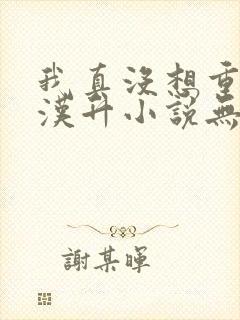 我真沒想重
漢升小說無
謝某暉